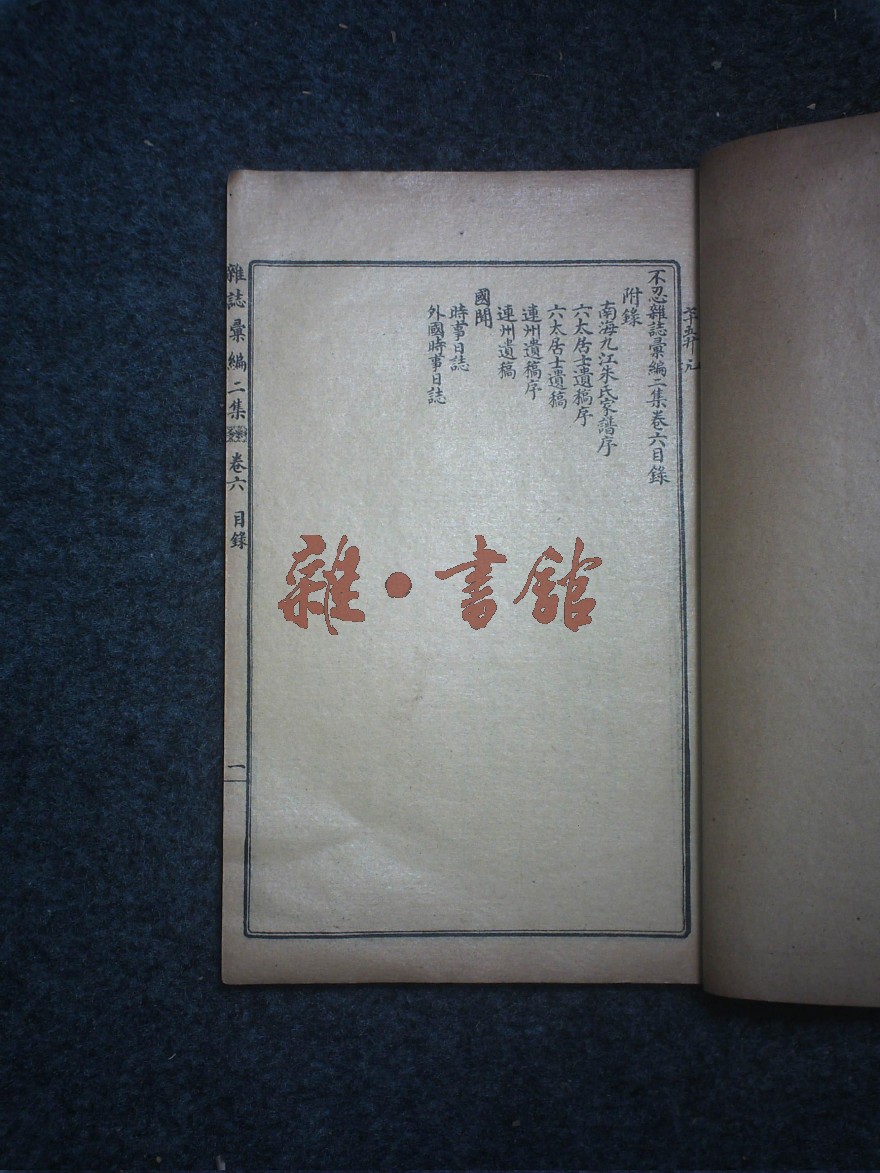 不忍雜誌彙編二集卷六目錄
附錄
南海九江朱氏家譜序
六太居士遺稿序
六太居士遺稿
連州遺稿序
連州遺稿
國聞
時事日誌
外國時事日誌
雜誌彙編二集 卷六 目錄
一
雜·書館